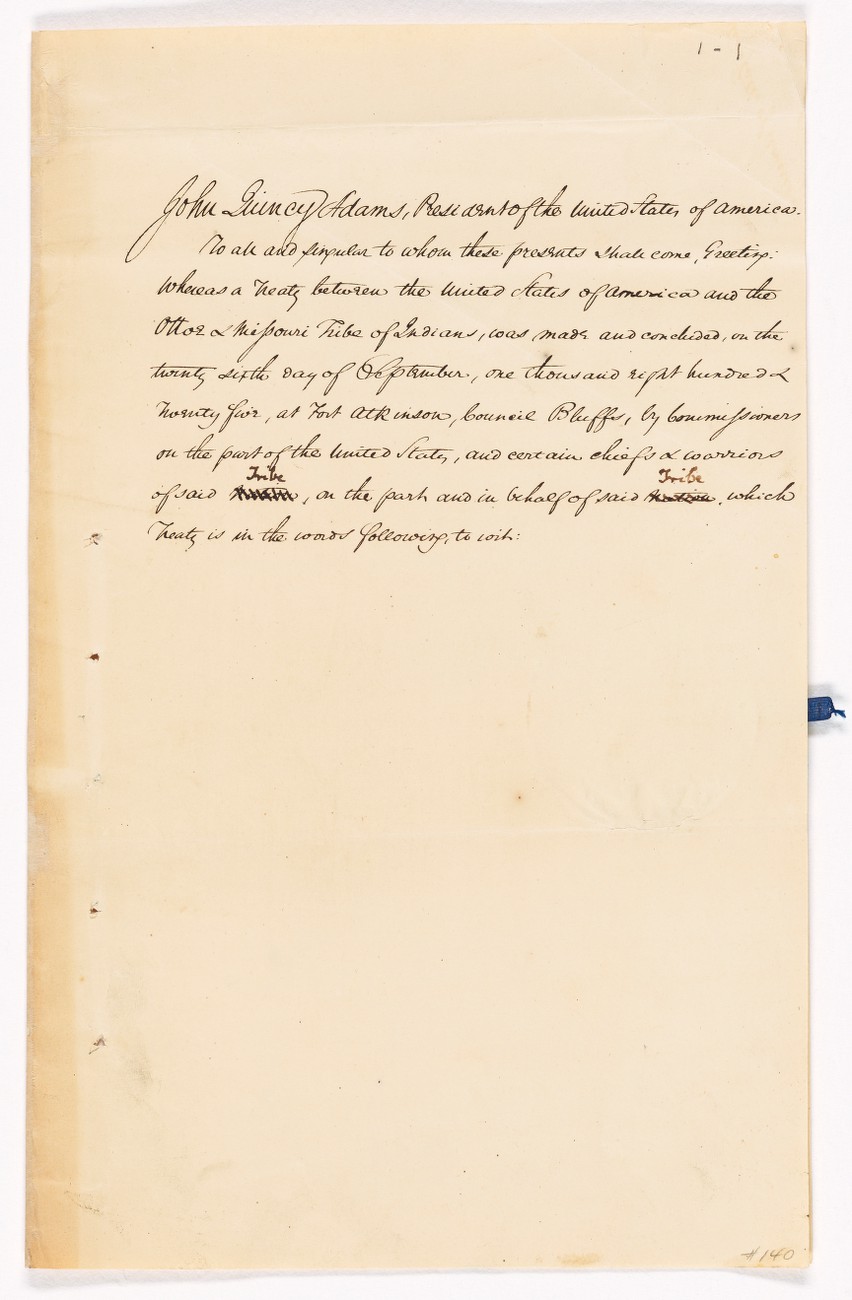 1-1
John Quincy Adams, President of the United States of America.
To all and singular to whom these presents shall come, Greeting:
Whereas a Treaty between the United States of America and the
Ottoe & Missouri Tribe of Indians, was made and concluded, on the
twenty sixth day of September, one thousand eight hundred &
Twenty five, at Fort Atkinson, Council Bluffs, by Commissioners
on the part of the United States, and certain chiefs & warriors
of said Tribe, on the part and in behalf of said nation Tribe, which
Treaty is in the words following, to wit:
#140